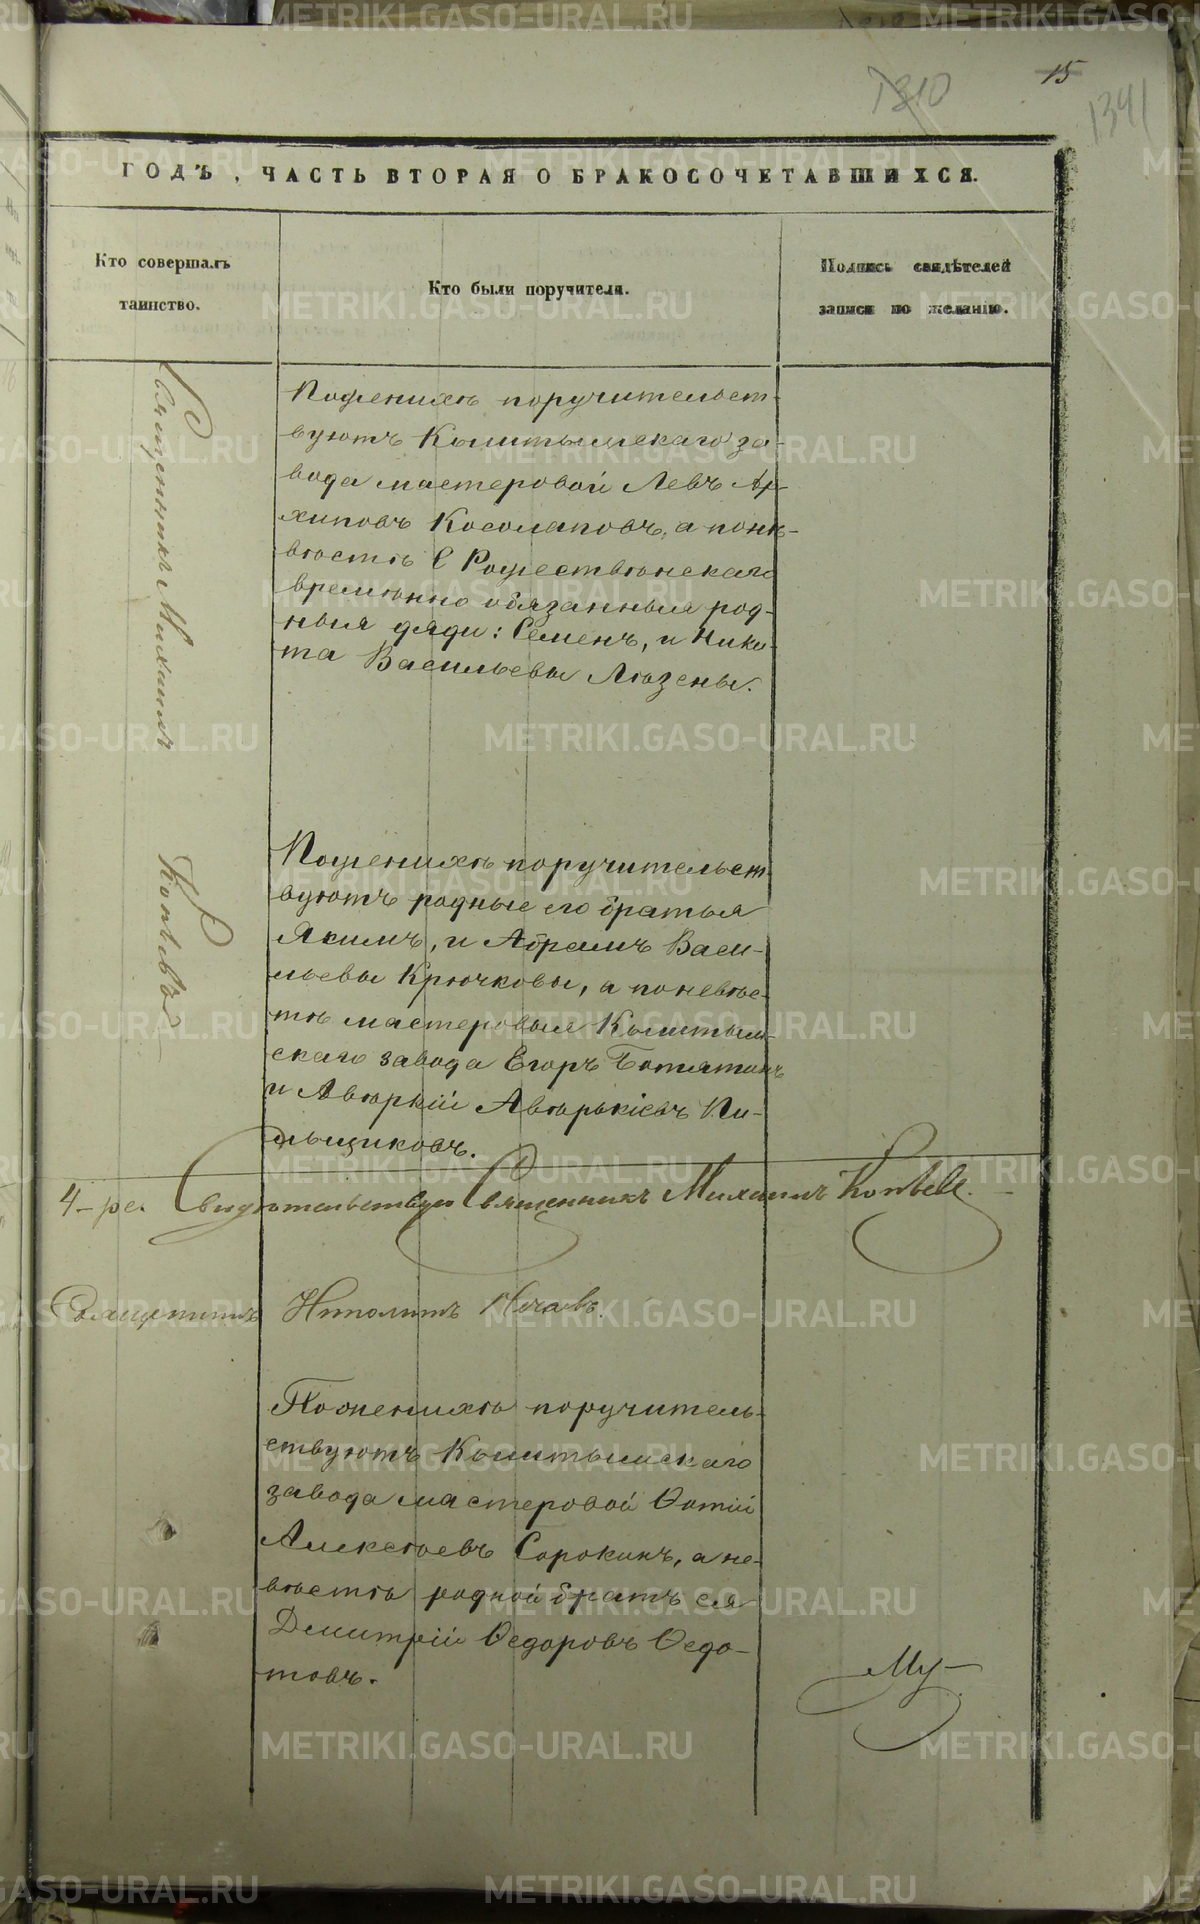 15
1310
1341
ГОДЪ, ЧАСТЬ ВТОРАЯ О БРАКОСОЧЕТАВШИХСЯ.
Кто совершалъ
таинство.
Кто были поручители.
Подпись свидѣтелей
записи по желанію.
Священникъ Михаилъ
Копѣевъ
Поженихѣ поручительст-
вуютъ Кыштымскаго за-
вода мастеровой Левъ Ар-
хиповъ Косолаповъ, а понѣ-
вѣстѣ С Рождественскаго
временно обязанныя род-
ныя дяди: Семенъ, и Ники-
та Васильевы
Поженихѣ поручительст
вуютъ родные его братья
Якимъ, и Абрамъ Васи-
льевы Крючковы, а поневѣс-
тѣ мастеровыя Кыштым-
скаго завода Егоръ
и Авѣркій Авѣркіевъ Пи-
льщиковъ.
4-ре. Свидѣтельствую Священникъ Михаилъ Копѣевъ.
Священникъ Иполитъ
Поженихѣ поручитель-
ствуютъ Кыштымскаго
завода мастеровой Ѳотій
Алексѣевъ Сорокинъ, а не-
вѣстѣ родной братъ ея
Дмитрій Ѳедоровъ Ѳедо-
товъ.
METRIKI.GASO-URAL.RU